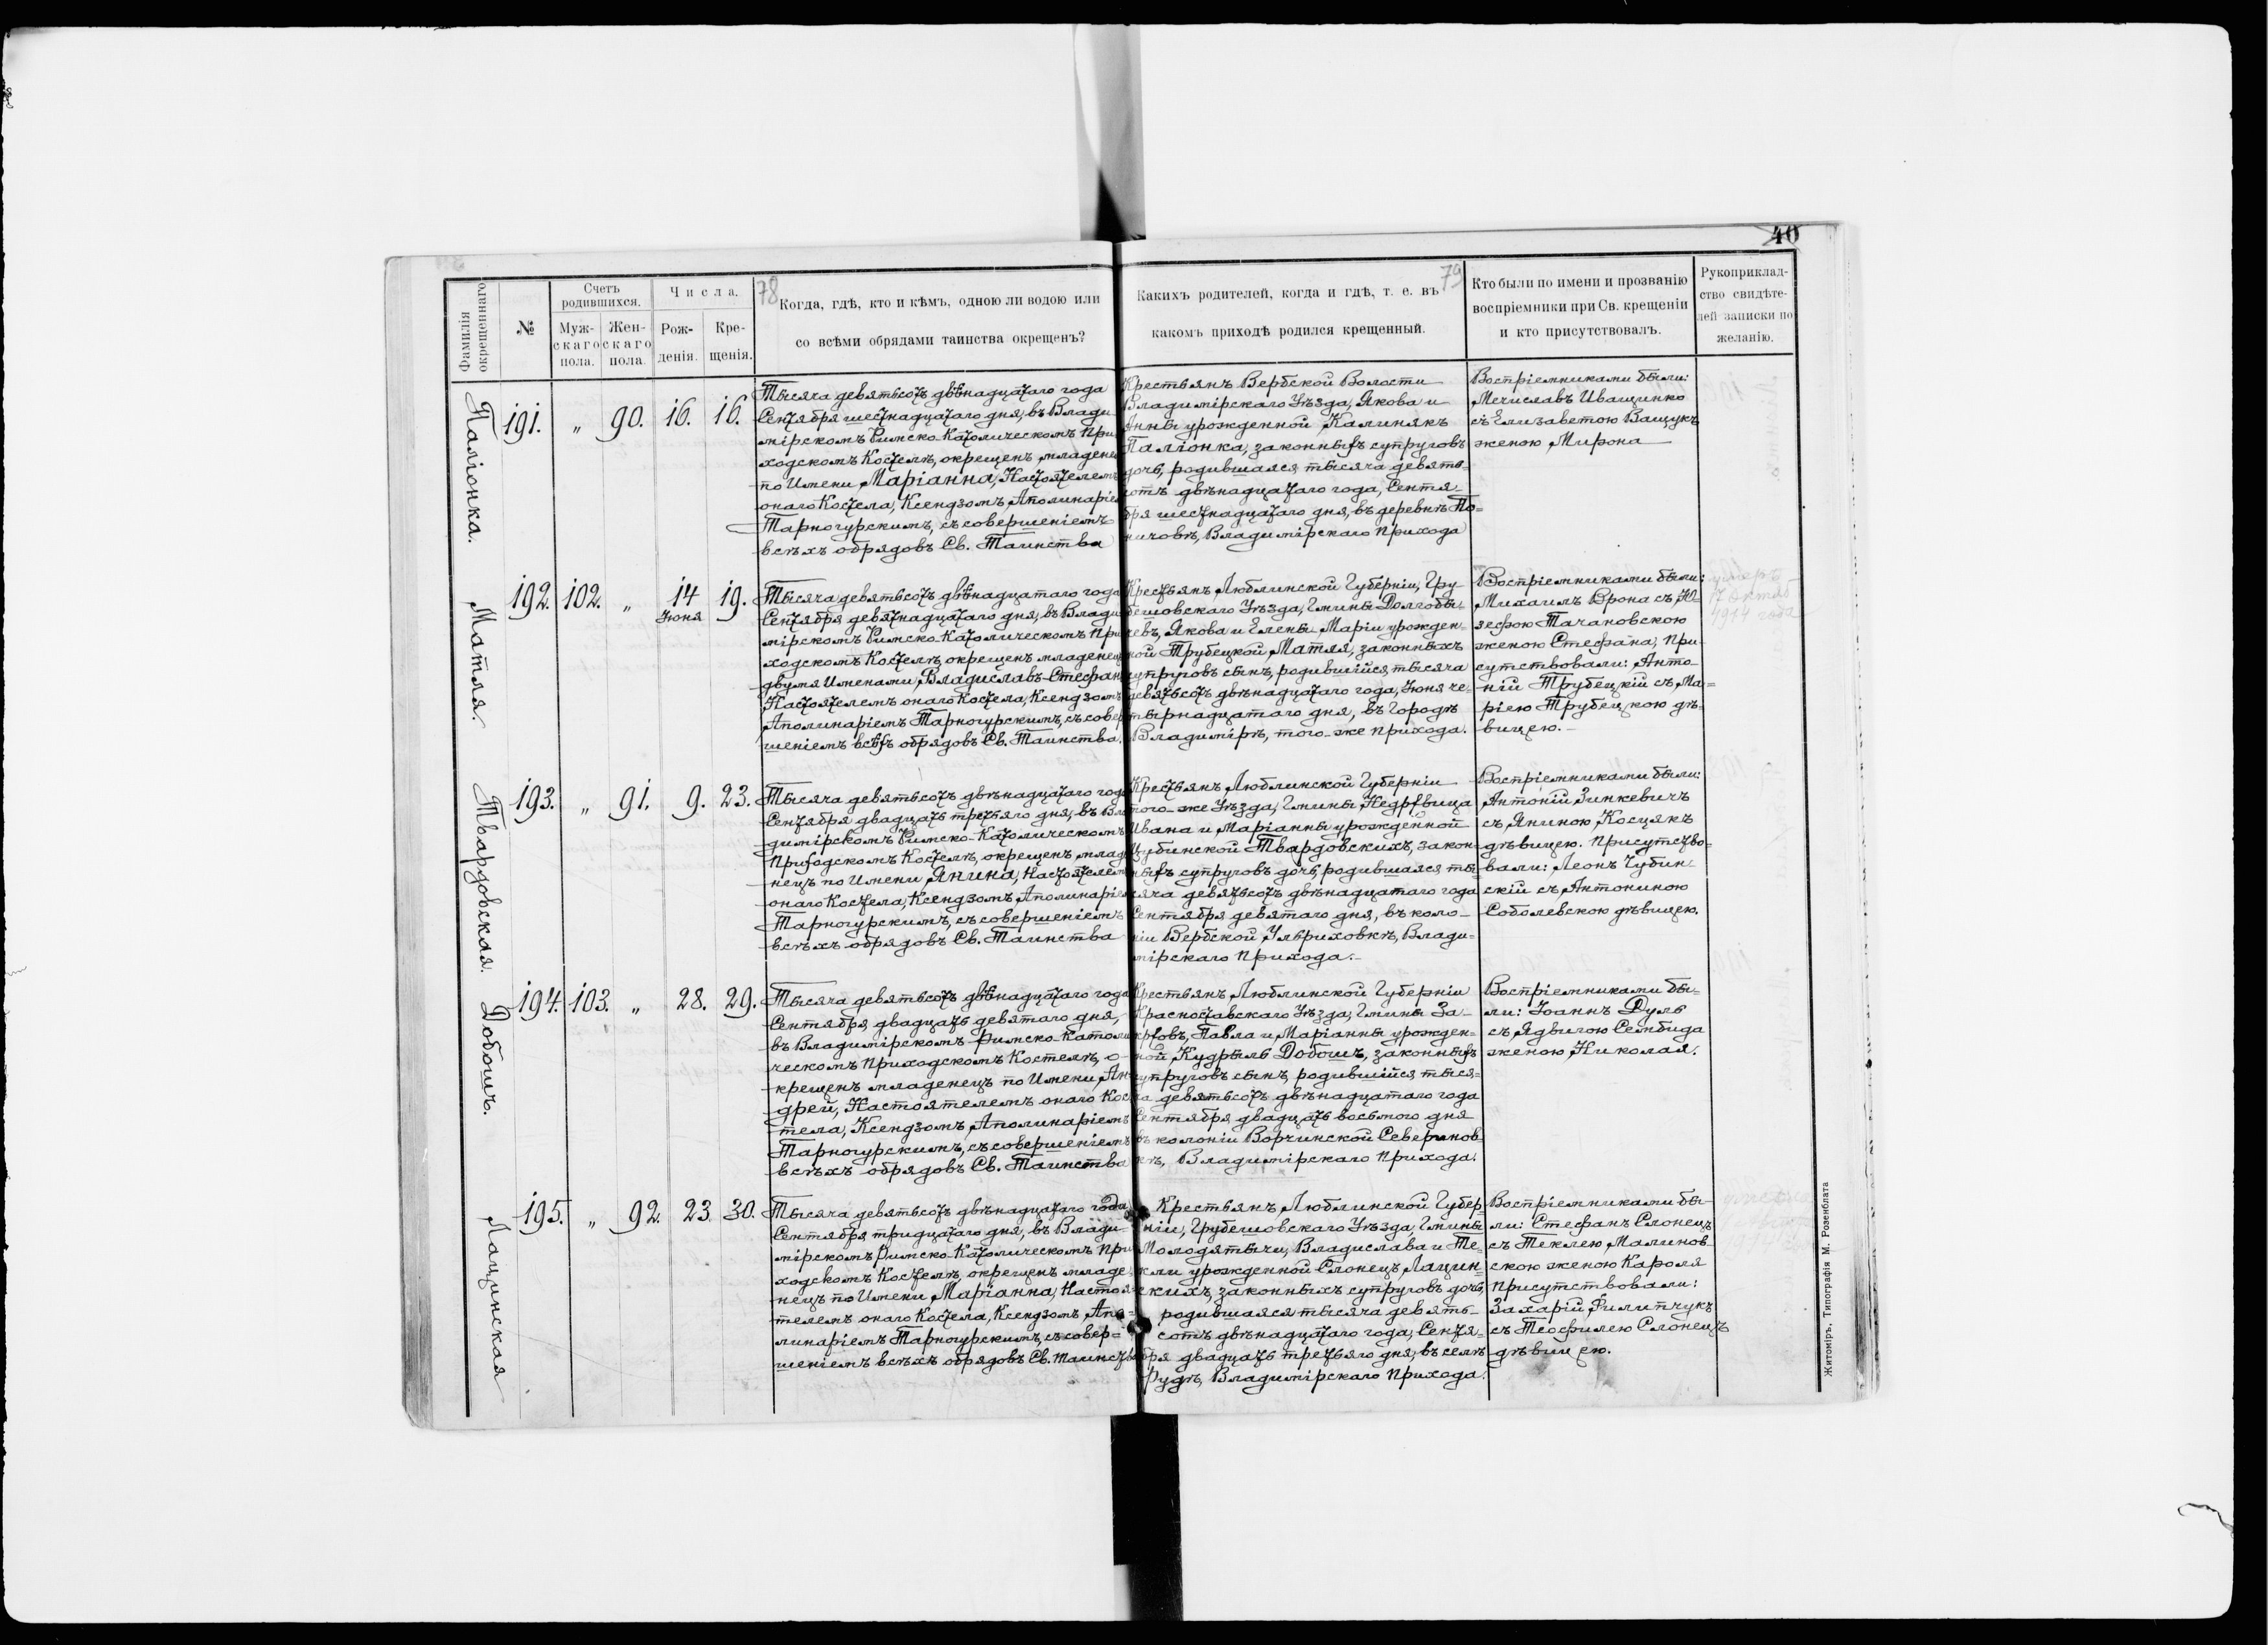 40
78
79
Фамилія
окрещеннаго
№
Счетъ
родившихся.
Муж-
скаго
пола.
Жен-
скаго
пола.
Числа.
Рож-
денія.
Кре-
щенія.
Когда, гдѣ, кто и кѣмъ, одною ли водою или
со всѣми обрядами таинства окрещенъ?
Какихъ родителей, когда и гдѣ, т. е. въ
какомъ приходѣ родился крещенный.
Кто были по имени и прозванію
воспріемники при Св. крещеніи
и кто присутствовалъ.
Рукоприклад-
ство свидѣте-
лей записки по
желанію.
Паліонка.
191. „ 90. 16. 16.
Тысяча девятьсотъ двѣнадцатаго года
Сентября шестнадцатаго дня, въ Влади
мірскомъ Римско-Католическомъ При
ходскомъ Костелѣ, окрещенъ младене
по Имени Маріанна, Настоятелемъ
онаго Костела, Ксендзомъ Аполинаріе
Тарногурскимъ, съ совершеніемъ
всѣхъ обрядовъ Св. Таинства
Крестьянъ Вербской Волости
Владимірскаго Уѣзда, Якова и
Анны урожденной Калинякъ
Паліонка, законныхъ супруговъ
дочь, родившаяся тысяча девять-
сотъ двѣнадцатаго года, Сентя-
бря шестнадцатаго дня, въ деревнѣ По=
ничовѣ, Владимірскаго Прихода
Воспріемниками были:
Мечиславъ Иващинко
съ Елизаветою Ващукъ
женою Мирона
Матля.
192. 102. „ 14 19.
Іюня
Тысяча девятьсотъ двѣнадцатаго года
Сентября девятнадцатаго дня, въ Влади
мірскомъ Римско-Католическомъ При
ходскомъ Костелѣ, окрещенъ младенец
двумя Именами, Владиславъ-Стефан
Настоятелемъ онаго Костела, Ксендзомъ
Аполинаріемъ Тарногурскимъ, съ совер
шеніемъ всѣхъ обрядовъ Св. Таинства.
Крестьянъ Люблинской Губерніи, Гру
бешовскаго Уѣзда, Гмины Долгобы-
чевъ, Якова и Елены-Маріи урожден-
ной Трубецкой, Матля, законныхъ
супруговъ сынъ, родившійся тысяча
девятьсотъ двѣнадцатаго года, Іюня че-
тырнадцатаго дня, въ Городѣ
Владимірѣ, того-же прихода.
Воспріемниками были:
Михаилъ Врона съ Ю-
зефою Тачановскою
женою Стефана, При-
сутствовали: Анто-
ній Трубецкій съ Ма=
ріею Трубецкою дѣ-
вицею.
умеръ
17 Октяб
1914 года
Твардовская.
193. „ 91. 9. 23.
Тысяча девятьсотъ двѣнадцатаго года
Сентября двадцать третьяго дня, въ Вла
димірскомъ Римско-Католическомъ
Приходскомъ Костелѣ, окрещенъ млад
нецъ по Имени Янина, Настоятелем
онаго Костела, Ксендзомъ Аполинаріе
Тарногурскимъ, съ совершеніемъ
всѣхъ обрядовъ Св. Таинства
Крестьянъ Люблинской Губерніи
того-же Уѣзда, Гмины Недрхвица
Ивана и Маріанны урожденной
Чубинской Твардовскихъ, закон-
ныхъ супруговъ дочь, родившаяся ты-
сяча девятьсотъ двѣнадцатаго года
Сентября девятаго дня, въ коло-
ніи Вербской Ульриховкѣ, Влади=
мірскаго Прихода.
Воспріемниками были:
Антоній Зинкевичъ
съ Яниною Косцякъ
дѣвицею. Присутство-
вали: Леонъ Чубин-
скій съ Антониною
Соболевскою дѣвицею.
Добошъ.
194. 103. „ 28. 29.
Тысяча девятьсотъ двѣнадцатаго года
Сентября двадцать девятаго дня,
въ Владимірскомъ Римско-Католи
ческомъ Приходскомъ Костелѣ, о-
крещенъ младенецъ по Имени, Ан-
дрей, Настоятелемъ онаго Кос
тела, Ксендзомъ Аполинаріемъ
Тарногурскимъ, съ совершеніемъ
всѣхъ обрядовъ Св. Таинства
Крестьянъ Люблинской Губерніи
Красноставскаго Уѣзда, Гмины За-
кржовъ, Павла и Маріанны урожден-
ной Кудрыль Добошъ, законныхъ
супруговъ сынъ, родившійся тыся-
ча девятьсотъ двѣнадцатаго года
Сентября двадцать восьмого дня
въ колоніи Ворчинской Северинов
кѣ, Владимірскаго Прихода.
Воспріемниками бы-
ли: Іоаннъ Дуль
съ Ядвигою Сембида
женою Николая.
Лацинская
195. „ 92. 23 30.
Тысяча девятьсотъ двѣнадцатаго года
Сентября тридцатаго дня, въ Влади-
мірскомъ Римско-Католическомъ При
ходскомъ Костелѣ, окрещенъ младе
нецъ по Имени Маріанна, Настоя-
телемъ онаго Костела, Ксендзомъ Апо-
линаріемъ Тарногурскимъ, съ совер=
шеніемъ всѣхъ обрядовъ Св. Таинства
Крестьянъ Люблинской Губер-
ніи, Грубешовскаго Уѣзда, Гмины
Молодятычи, Владислава и Те-
кли урожденной Слонецъ, Лацин-
скихъ, законныхъ супруговъ дочь,
родившаяся тысяча девять-
сотъ двѣнадцатаго года, Сентя-
бря двадцать третьяго дня, въ селѣ
Рудѣ, Владимірскаго Прихода.
Воспріемниками бы-
ли: Стефанъ Слонецъ
съ Теклею Малинов-
скою женою Кароля
Присутствовали:
Захарій Филипчукъ
съ Теофилею Слонецъ
дѣвицею.
Житоміръ, Типографія М. Розенблата